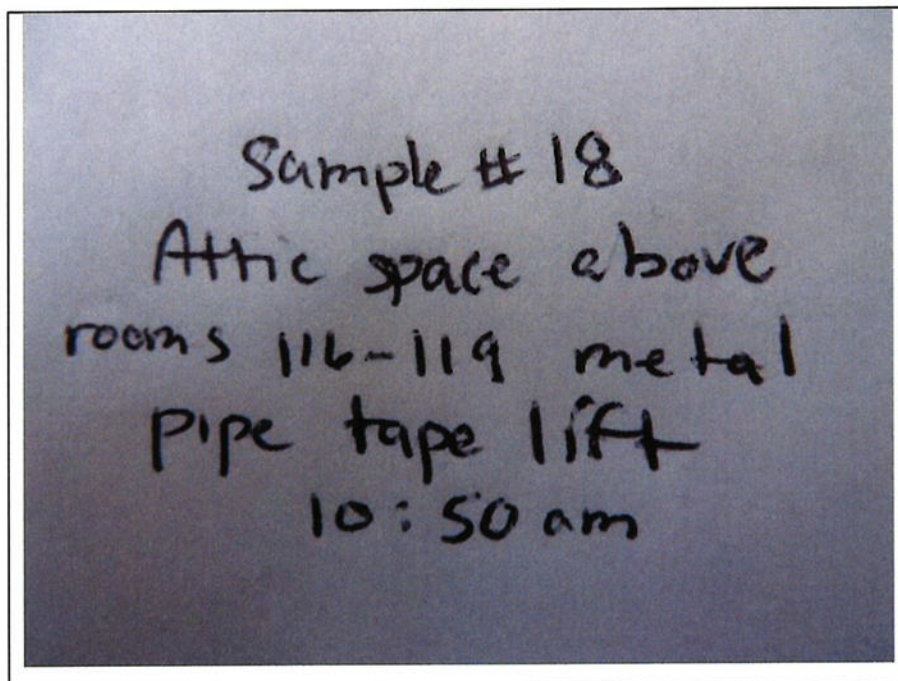 Sample # 18
Attic space above
rooms 116-119 metal
pipe tape lift
10:50 am